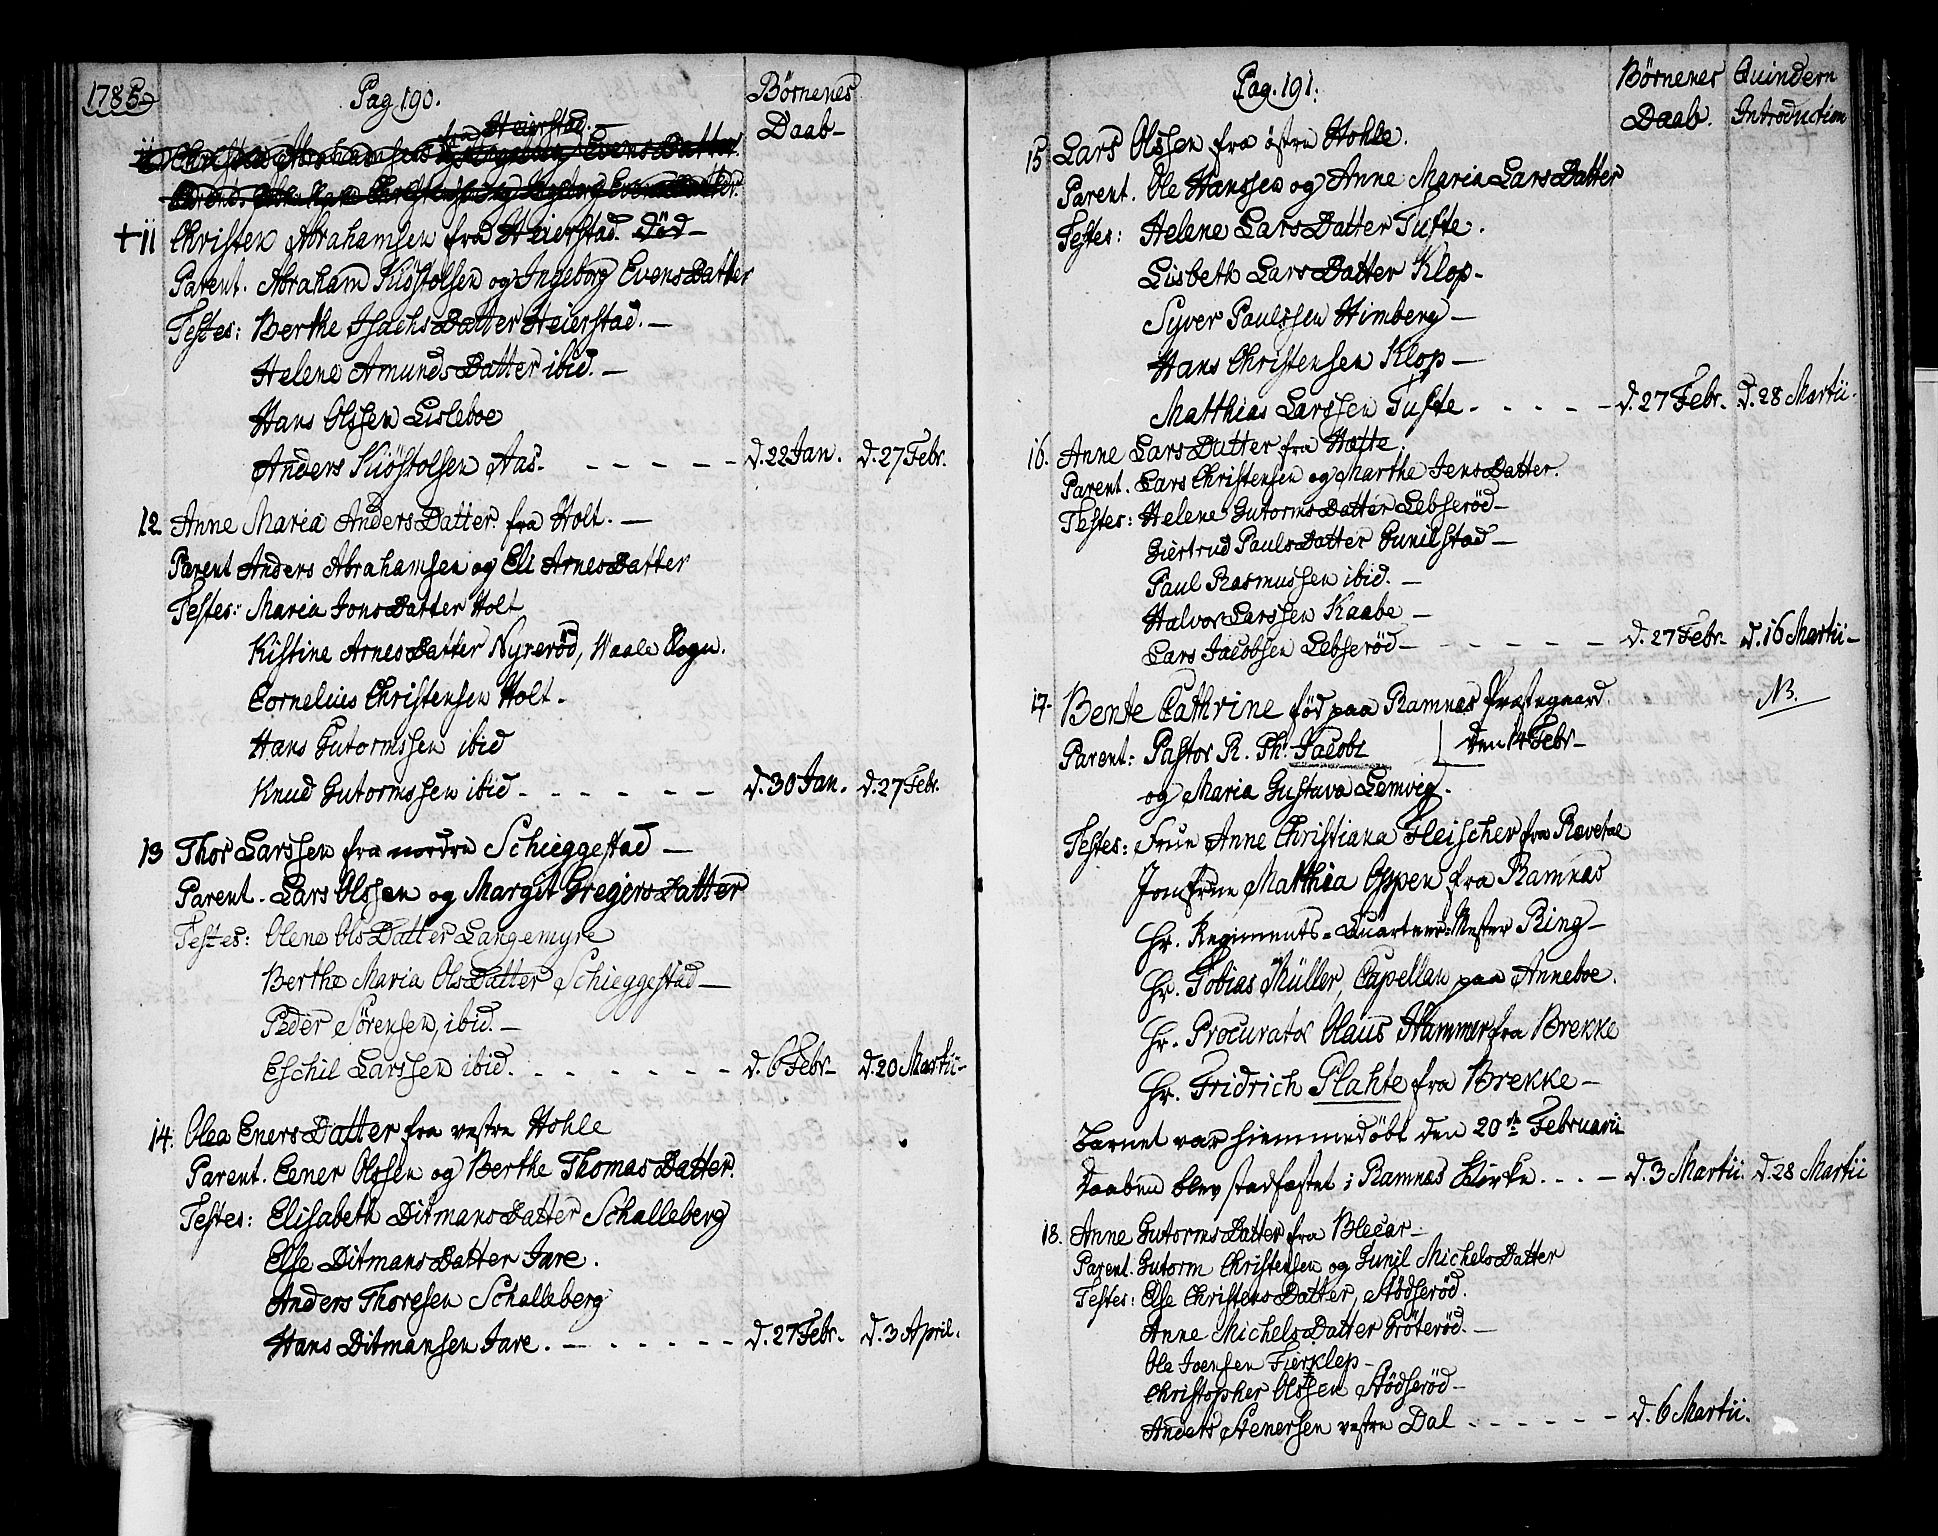 1785
Pag 190.
Børnenes
Daab-
fra Heierstad. -
11 Christen Abrahamsens Ingeborg Evens Datter.
+ 11 Christen Abrahamsen fra Heierstad. død-
Parent. Abraham Kiöstolsen og Ingeborg Evens Datter
Testes: Berthe Isachs Datter Heierstad. -
Helene Amunds Datter ibid. -
Hans Olssen Lisleboe
Anders Kiöstolsen Aas. - - - - - d. 22 Jan. d. 27 Febr.
12 Anne Maria Anders Datter fra Holt. -
Parent Anders Abrahamsen og Eli Arnes Datter
Testes: Maria Jons Datter Holt
Kistine Arnes Datter Nyrerød, Vaale Sogn.
Cornelius Christensen Holt.
Hans Gutormssen ibid
Knud Gutormssen ibid - - - - - - d. 30 Jan. d. 27 Febr.
13 Thor Larssen fra nordre Schieggestad -
Parent. Lars Olssen og Margit Gregers Datter
Testes: Olene Ols Datter Langemyre
Berthe Maria Ols Datter Schieggestad -
Peder Sørensen, ibid. -
Eschil Larssen ibid. - - - - - - - d. 6 Febr- d. 20 Martii-
14. Olea Eners Datter fra vestre Hohle
Parent. Eener Olssen og Berthe Thomas Datter.
Testes: Elisabeth Ditmans Datter Schalleberg
Else Ditmans Datter Jare.
Anders Thoresen Schalleberg
Hans Ditmansen Jare. - - - - - - d. 27 Febr. d. 3 April.
Pag. 191.
Børnenes Quindern
Daab. Introduction
15 Lars Olssen fra østre Hohle.
Parent. Ole Hanssen og Anne Maria Lars Datter
Testes: Helene Lars Datter Tufte.
Lisbeth Lars Datter Klop-
Syver Paulssen Himberg -
Hans Christensen Klop -
Matthias Larssen Tufte - - - - - d. 27 Febr. d. 28 Martii.
16. Anne Lars Datter fra Hætte.
Parent. Lars Christensen og Marthe Jens Datter.
Testes: Helene Gutorms Datter Lebserød-
Giertrud Pauls Datter Gunilstad -
Paul Rasmussen ibid. -
Halvor Larssen Kaabe -
Lars Jacobsen Lebserød - - - - - - d. 27 Febr. d. 16 Martii-
17. Bente Cathrine fød paa Ramnes Præstegaard. NB.
Parent: Pastor R. Ph. Jacobi den 14 Febr-
og Maria Gustava Lemvig.
Testes: Frue Anne Christiana Fleischer fra Rævetal
Jomfrue Matthia Oppen fra Ramnas
Hr. Regiments-Quarteer-Mester Ring-
Hr. Tobias Müller, Capellan paa Anneboe.
Hr. Procurator Olaus Hammer fra Brekke
Hr. Fridrich Plahte fra Brekke -
Barnet var hiemmedøbt den 20de Februarii
Daaben blev stadfæstet i Ramnæs Kirke. . . - d. 3 Martii. d. 28 Martii
18. Anne Gutorms Datter fra Blecar-
Parent. Gutorm Christensen og Gunil Michels Datter
Testes: Else Christens Datter, Stødserød.
Anne Michels Datter Grøterød. -
Ole Joensen Fierklep-
Christopher Olssen Stødserød-
Anders Stenersen vestre Dal - - - - - - d. 6 Martii.